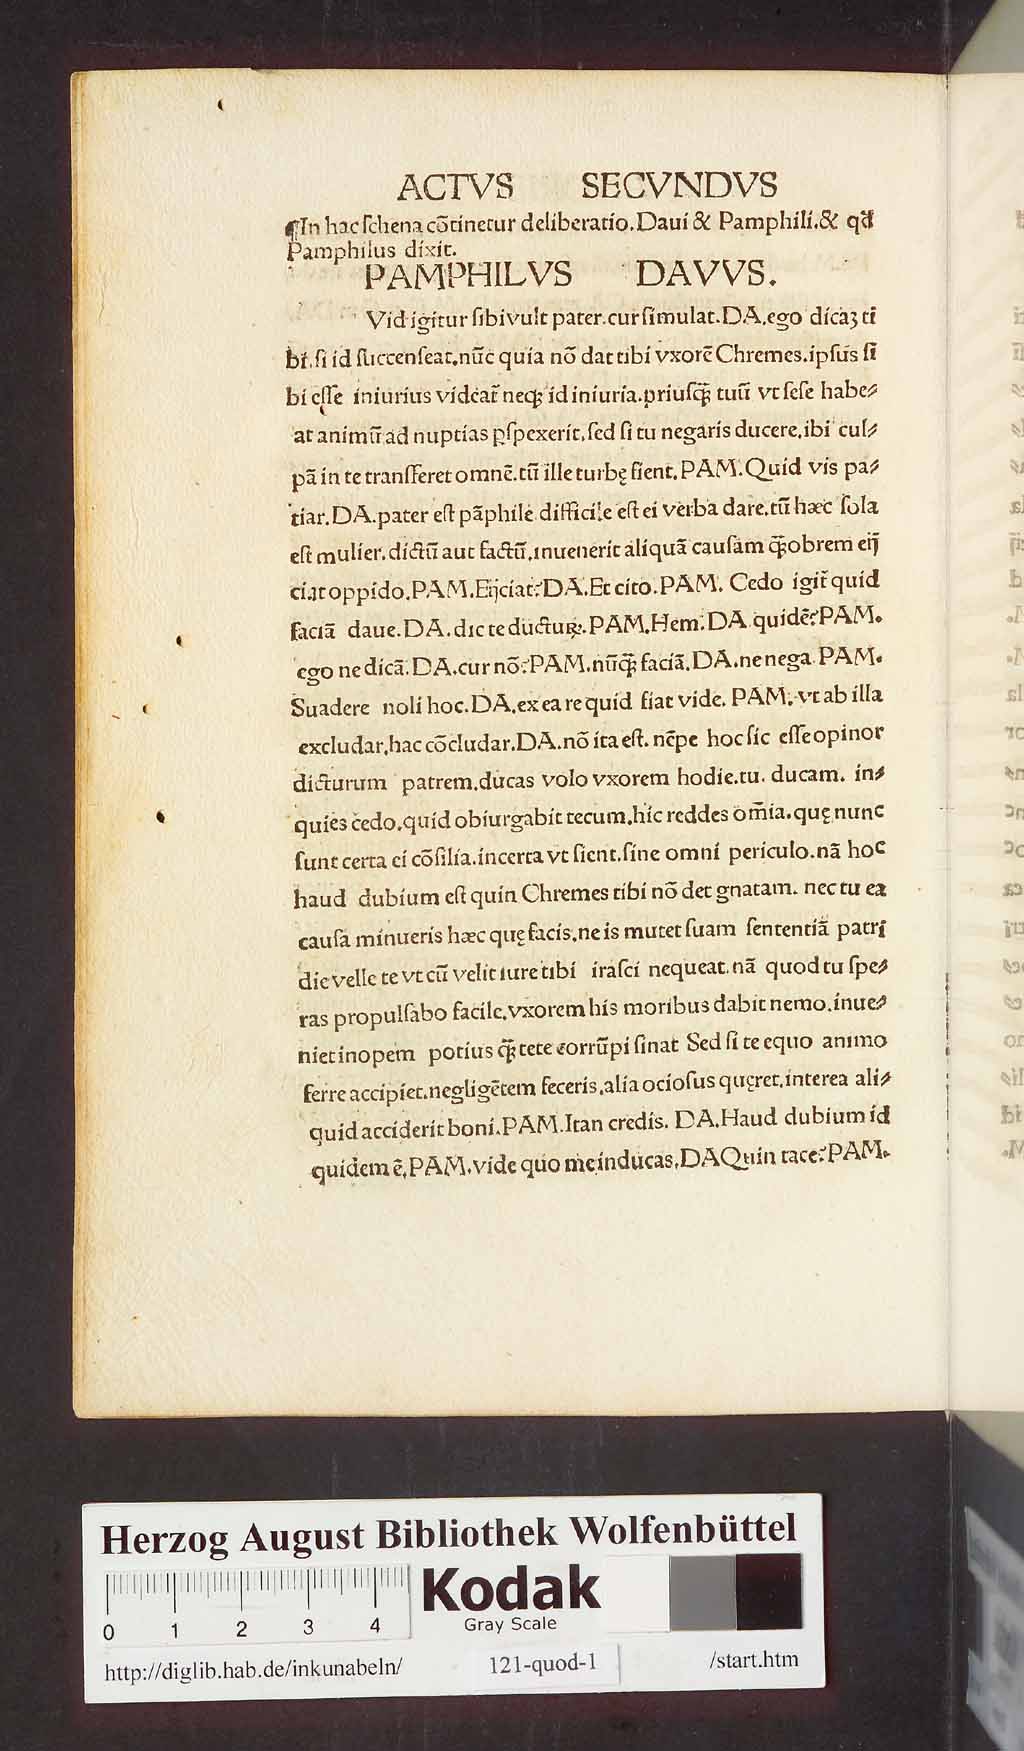 ACTVS SECVNDVS
¶In hac schena cōtinetur deliberatio. Daui & Pamphili. & qđ
Pamphilus dixit.
PAMPHILVS DAVVS.
Vid igitur sibi vult pater. cur simulat. DA. ego dicaʒ ti
bi. si id succenseat. nūc quia nō dat tibi vxorē Chremes. ipsus si
bi esse iniurius videat̃ neqꝫ id iniuria. priusq̃ tuū vt sese habe⸗
at animū ad nuptias ꝑspexerit. sed si tu negaris ducere. ibi cul⸗
pā in te transferet omnē. tū ille turbę fient. PAM. Quid vis pa⸗
tiar. DA. pater est pāphile difficile est ei verba dare. tū hæc sola
est mulier. dictū aut factū. inuenerit aliquā causam q̃obrem eij
ciat oppido. PAM. Eijciat? DA. Et cito. PAM. Cedo igit̃ quid
faciā daue. DA. dic te ducturꝝ. PAM. Hem. DA quidē? PAM.
ego ne dicā. DA. cur nō? PAM. nūq̃ faciā. DA. ne nega PAM.
Suadere noli hoc. DA. ex ea re quid fiat vide. PAM. vt ab illa
excludar. hac cōcludar. DA. nō ita est. nēpe hoc sic esse opinor
dicturum patrem. ducas volo vxorem hodie. tu. ducam. in⸗
quies cedo. quid obiurgabit tecum. hic reddes om̄ia. quę nunc
sunt certa ei cōsilia. incerta vt sient. sine omni periculo. nā hoc
haud dubium est quin Chremes tibi nō det gnatam. nec tu ea
causa minueris hæc quę facis. ne is mutet suam sententiā patri
dic velle te vt cū velit iure tibi irasci nequeat. nā quod tu spe⸗
ras propulsabo facile. vxorem his moribus dabit nemo. inue⸗
niet inopem potius q̃ tete corrūpi sinat Sed si te equo animo
ferre accipiet. negligētem feceris. alia ociosus quęret. interea ali⸗
quid acciderit boni. PAM. Itan credis. DA. Haud dubium id
quidem ē. PAM. vide quo me inducas. DA Quin tace? PAM.
Herzog August Bibliothek Wolfenbüttel
Kodak
Gray Scale
0 1 2 3 4
http://diglib.hab.de/inkunabeln/ 121-quod-1 /start.htm